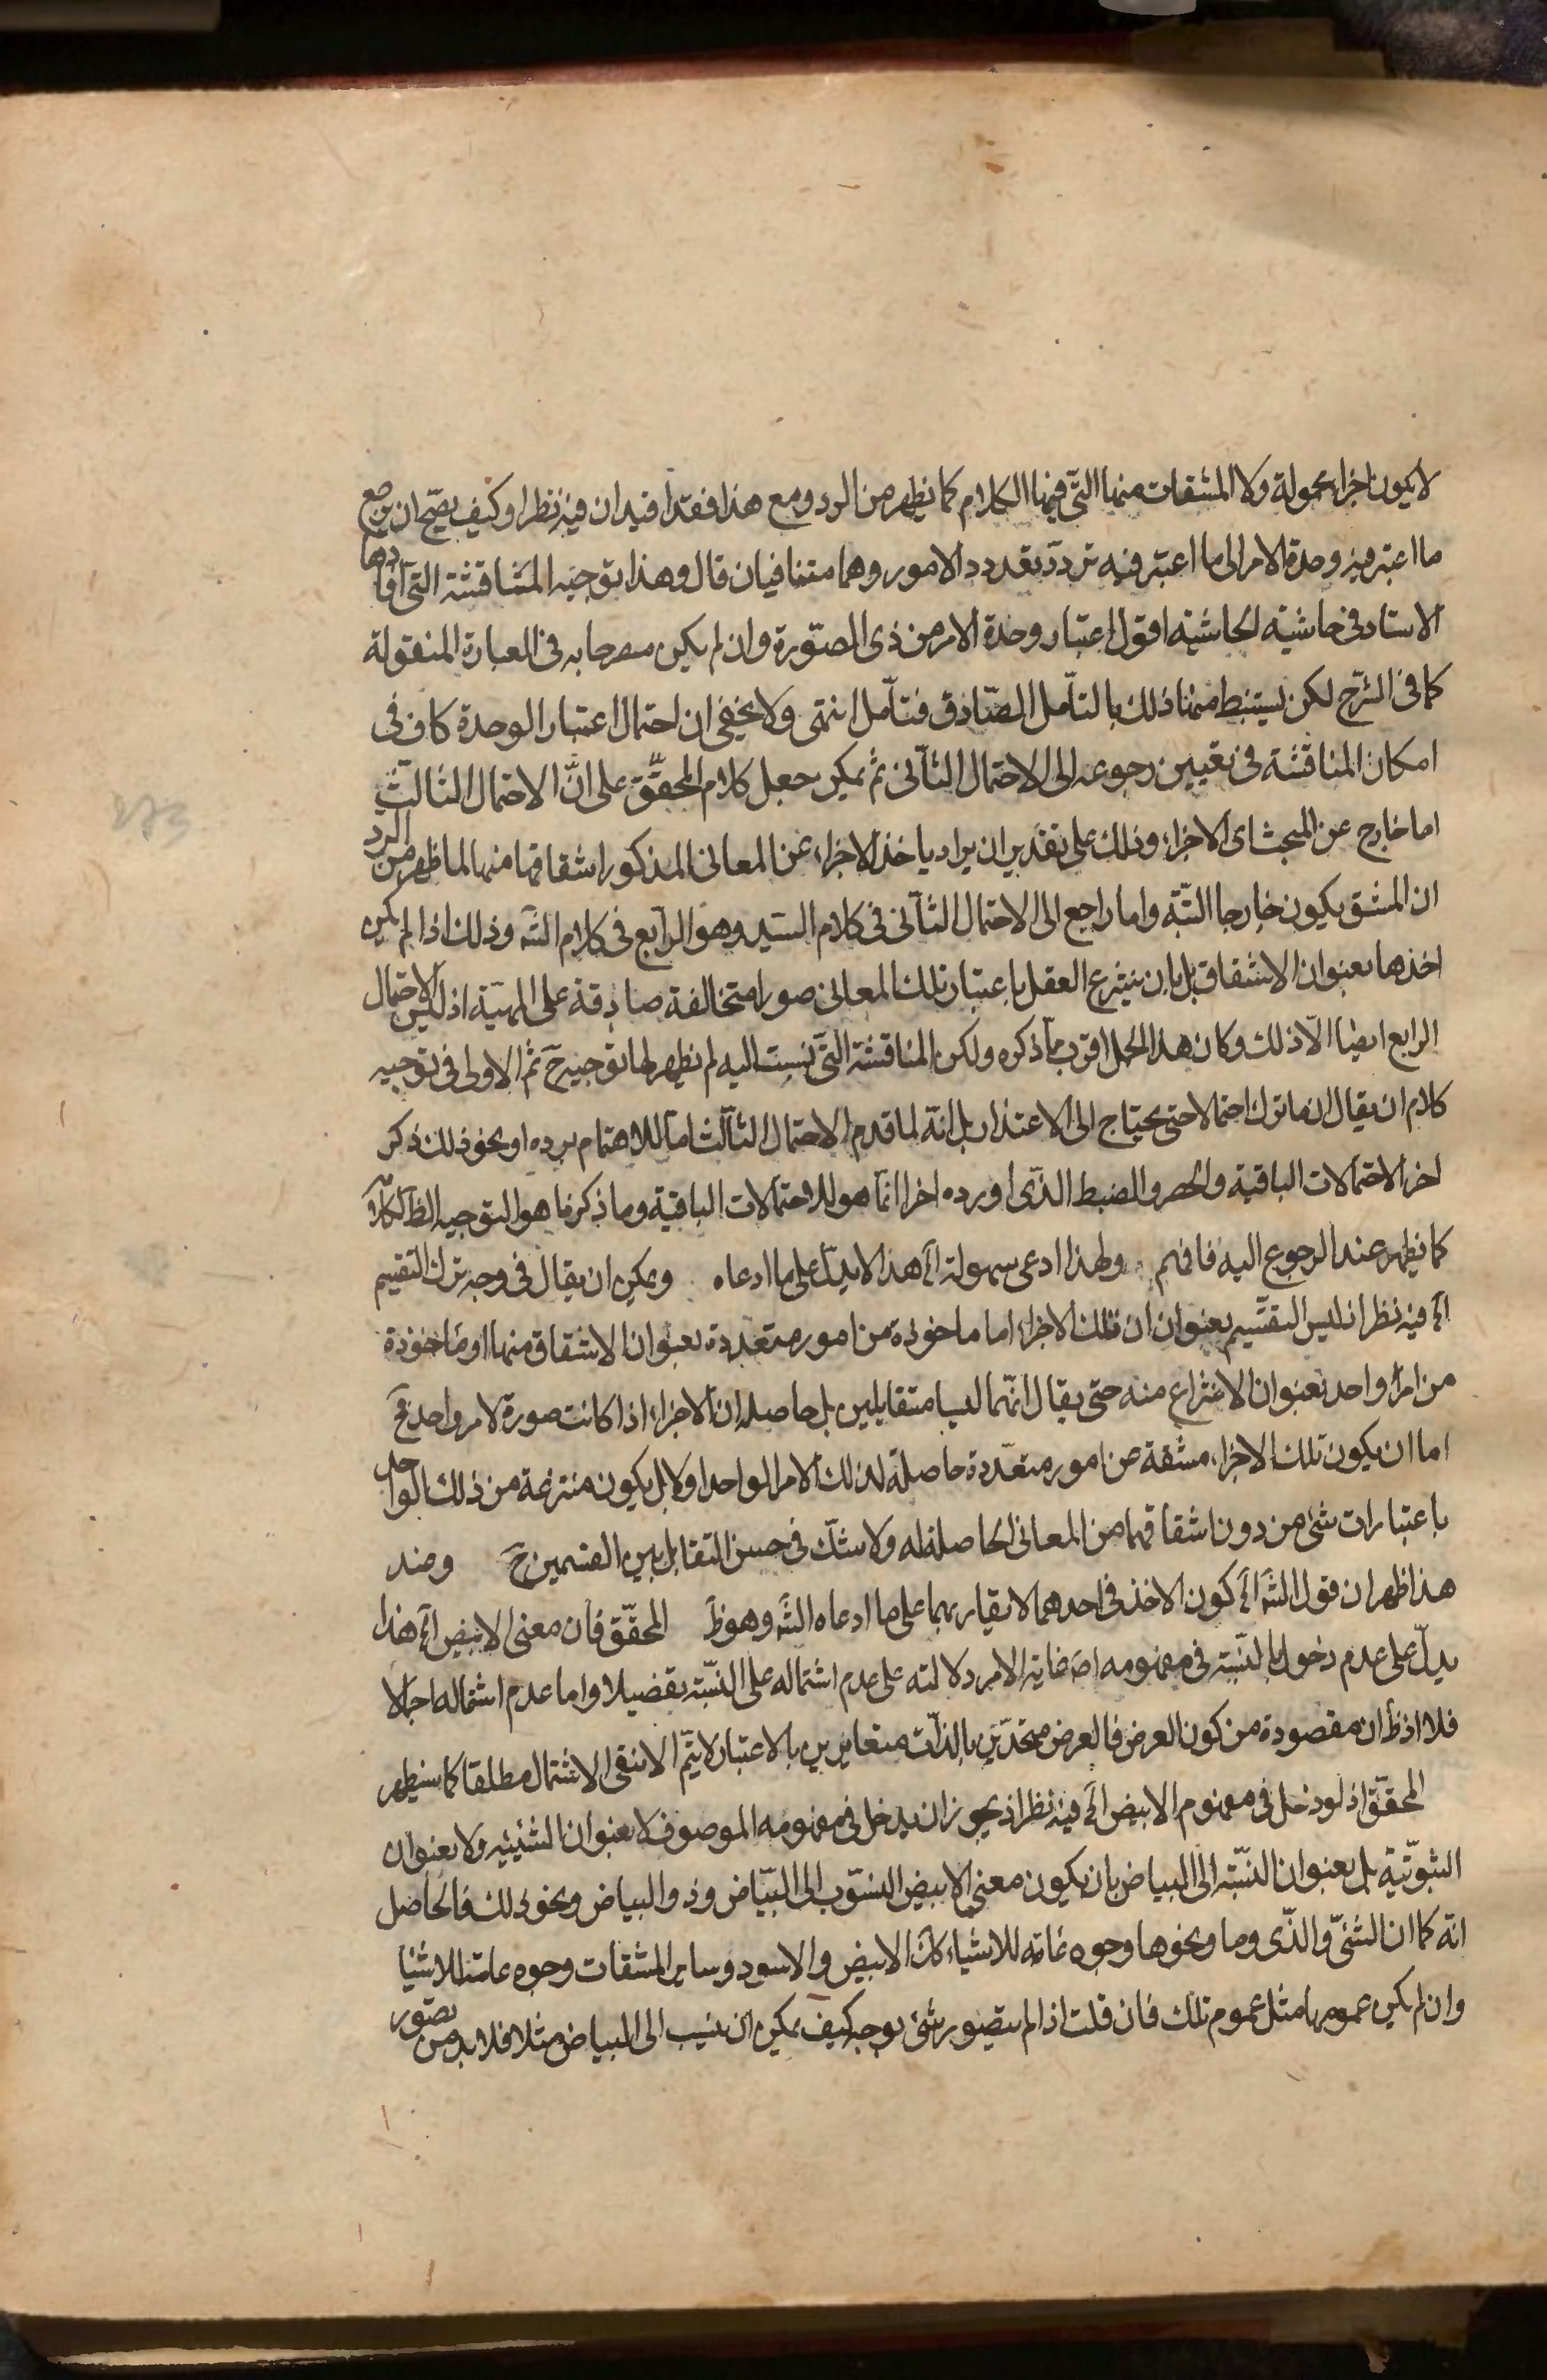 لا يكون اجزاء محمولة ولا المشتقات منها التى فيها الكلام كما يظهر من الرد ومع هذا فقد افيد ان فيه نظرا وكيف يصح ان يرجع
ما اعتبر فيه وحدة الامر الى ما اعتبر فيه تردد تعدد الامور وهما متنافيان قال وهذا توجيه المناقشة التى افادها
الاستاد فى حاشية الحاشية اقول اعتبار وحدة الامر من ذى الصورة وان لم يكن مصرحا به فى العبارة المنقولة
كما فى الشرح لكن يستنبط منها ذلك بالتأمل الصادق فتأمل انتهى ولا يخفى ان احتمال اعتبار الوحدة كاف فى
امكان المناقشة فى تعيين رجوعه الى الاحتمال الثانى ثم يمكن جعل كلام المحقق على انّ الاحتمال الثالث
اما خارج عن المبحث اى الاجزاء وذلك على تقدير ان يراد ياخذ الاجزاء عن المعانى المذكور اشتقاقها منها لما ظهر من الرد
ان المشتق يكون خارجا البتة واما راجع الى الاحتمال الثانى فى كلام السيد وهو الرابع فى كلام الشه وذلك اذا لم يكن
اخذها بعنوان الاشتقاق بل بان ينتزع العقل باعتبار تلك المعانى صورا متخالفة صادقة على المهية اذ ليس الاحتمال
الرابع ايضا الّا ذلك وكان هذا الحمل اقرب مما ذكره ولكن المناقشة التى نسبت اليه لم يظهر لها توجيه ح ثم الاولى فى توجيه
كلامه ان يقال انه ما ترك احتمالا حتى يحتاج الى الاعتذار بل انّه لما قدم الاحتمال الثالث اما للاهتمام برده او نحو ذلك ذكر
اخر الاحتمالات الباقية والحصر والضبط الذى اورده اخرا انما هو للاحتمالات الباقية وما ذكرنا هو التوجيه الظ لكلامه
كما يظهر عند الرجوع اليه فافهم ولهذا ادعى سهولة اه هذا لا يدل على ما ادعاه ويمكن ان يقال فى وجه ترك التقييم
اه فيه نظر اذ ليس التقسيم بعنوان ان تلك الاجزاء اما ماخوذة من امور متعددة بعنوان الاشتقاق منها او ماخوذة
من امر واحد بعنوان الانتزاع منه حتى يقال انّهما ليسا متقابلين بل حاصله ان الاجزاء اذا كانت صورة لامر واحد فح
اما ان يكون تلك الاجزاء مشتقة من امور متعددة حاصلة لذلك الامر الواحد او لا بل يكون منتزعة من ذلك الواحد
باعتبارات شتى من دون اشتقاقها من المعانى الحاصلة له ولا شك فى حسن التقابل بين القسمين ح ومنه
هذا ظهر ان قول الشه اه كون الاخذ فى احدهما لا بقياريهما على ما ادعاه الشه وهو ظ المحقق فان معنى الابيض اه هذا
يدل على عدم دخول بالنسبة فى مفهومه اصَ غاية الامر دلالته على عدم اشتماله على النسبة تفصيلا واما عدم اشتماله اجمالا
فلا اذ ظ ان مقصوده من كون العرض فالعرض متحدين بالذات متغايرين بالاعتبار لا يتم الا بنفى الاشتمال مطلقا كما سيظهر
المحقق اذ لو دخل فى مفهوم الابيض اه فيه نظر اذ يجوز ان يدخل فى مفهومه الموصوف لا بعنوان الشيئيه ولا بعنوان
الثبوتية بل بعنوان النسبة الى البياض بان يكون معنى الابيض المنسوب الى البياض وذو البياض ونحو ذلك فالحاصل
انّه كما ان الشئ والذى وما ونحوها وجوه عامة للاشياء كك الابيض والاسود وساير المشتقات وجوه عامة للاشيا
وان لم يكن عمومها مثل عموم تلك فان قلت اذا لم يتصور شئ بوجه كيف يمكن ان ينسب الى البياض مثلا فلا بد من تصور